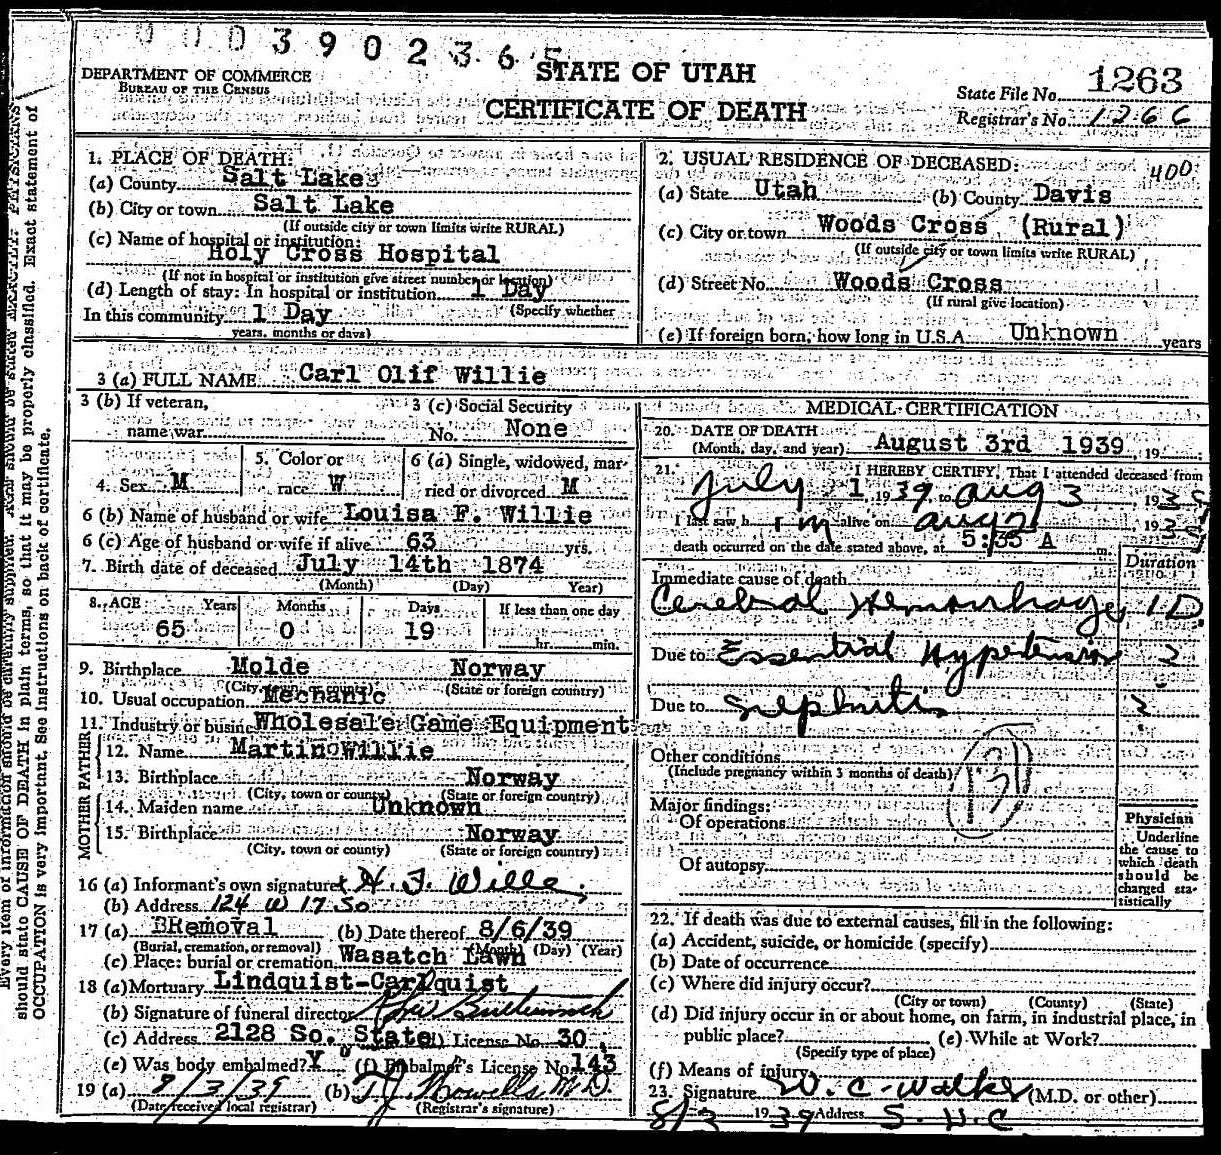 0003902365
STATE OF UTAH
CERTIFICATE OF DEATH
DEPARTMENT OF COMMERCE
BUREAU OF THE CENSUS
State File No. 1263
Registrar's No. 1266
1. PLACE OF DEATH:
(a) County Salt Lake
(b) City or town Salt Lake
(If outside city or town limits write RURAL)
(c) Name of hospital or institution:
Holy Cross Hospital
(If not in hospital or institution give street number or location)
(d) Length of stay: In hospital or institution 1 Day
(Specify whether
In this community 1 Day
years, months or days)
2. USUAL RESIDENCE OF DECEASED: 400
(a) State Utah (b) County Davis
(c) City or town Woods Cross (Rural)
(If outside city or town limits write RURAL)
(d) Street No. Woods Cross
(If rural give location)
(e) If foreign born, how long in U.S.A. Unknown years
3 (a) FULL NAME Carl Olif Willie
3 (b) If veteran,
name war
3 (c) Social Security
No. None
4. Sex M
5. Color or
race W
6 (a) Single, widowed, mar-
ried or divorced M
6 (b) Name of husband or wife Louisa F. Willie
6 (c) Age of husband or wife if alive 63 yrs.
7. Birth date of deceased July 14th 1874
(Month) (Day) Year)
8. AGE Years Months Days If less than one day
65 0 19 hr. min.
9. Birthplace Molde Norway
(City, town or county) (State or foreign country)
10. Usual occupation Mechanic
11. Industry or busine Wholesale Game Equipment
FATHER
12. Name Martin Willie
13. Birthplace Norway
(City, town or county) (State or foreign country)
MOTHER
14. Maiden name Unknown
15. Birthplace Norway
(City, town or county) (State or foreign country)
16 (a) Informant's own signature
(b) Address 124 W 17 So
17 (a) BRemoval (b) Date thereof 8/6/39
(Burial, cremation, or removal) (Month) (Day) (Year)
(c) Place: burial or cremation Wasatch Lawn
18 (a) Mortuary Lindquist-Carlquist
(b) Signature of funeral director
(c) Address 2128 So. State (d) License No. 30
(e) Was body embalmed? Y (f) Embalmer's License No. 143
19 (a) 8/3/39 (b) M.D.
(Date received local registrar) (Registrar's signature)
MEDICAL CERTIFICATION
20. DATE OF DEATH
(Month, day, and year) August 3rd 1939, 19
21. I HEREBY CERTIFY, That I attended deceased from
July 1 1939 to Aug 3 1939
I last saw h im alive on Aug 2 1939
death occurred on the date stated above, at 5:35 A m.
Duration
Immediate cause of death
Cerebral Hemorrhage 1 D.
Due to Essential Hypertension ?
Due to Nephritis ?
Other conditions
(Include pregnancy within 3 months of death)
131
Major findings:
Of operations
Of autopsy
Physician
Underline
the cause to
which death
should be
charged sta-
tistically
22. If death was due to external causes, fill in the following:
(a) Accident, suicide, or homicide (specify)
(b) Date of occurrence
(c) Where did injury occur?
(City or town) (County) (State)
(d) Did injury occur in or about home, on farm, in industrial place, in
public place? (e) While at Work?
(Specify type of place)
(f) Means of injury
23. Signature W. C. Walker (M.D. or other)
8/3 1939 Address S. L. C
should state CAUSE OF DEATH in plain terms, so that it may be properly classified. Exact statement of
OCCUPATION is very important. See instructions on back of certificate.